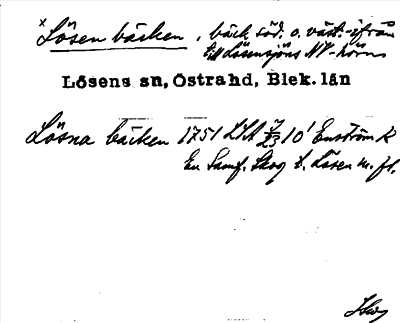 x Lösen bäcken, bäck söd. o. väst. ifrån
till Lösensjöns NV-hörn
Lösens sn, Östra hd, Blek. län
Lösna bäcken 1751 LSA 7/23 10¹ Enström K
En Samf. Skog t. Lösen m. fl.